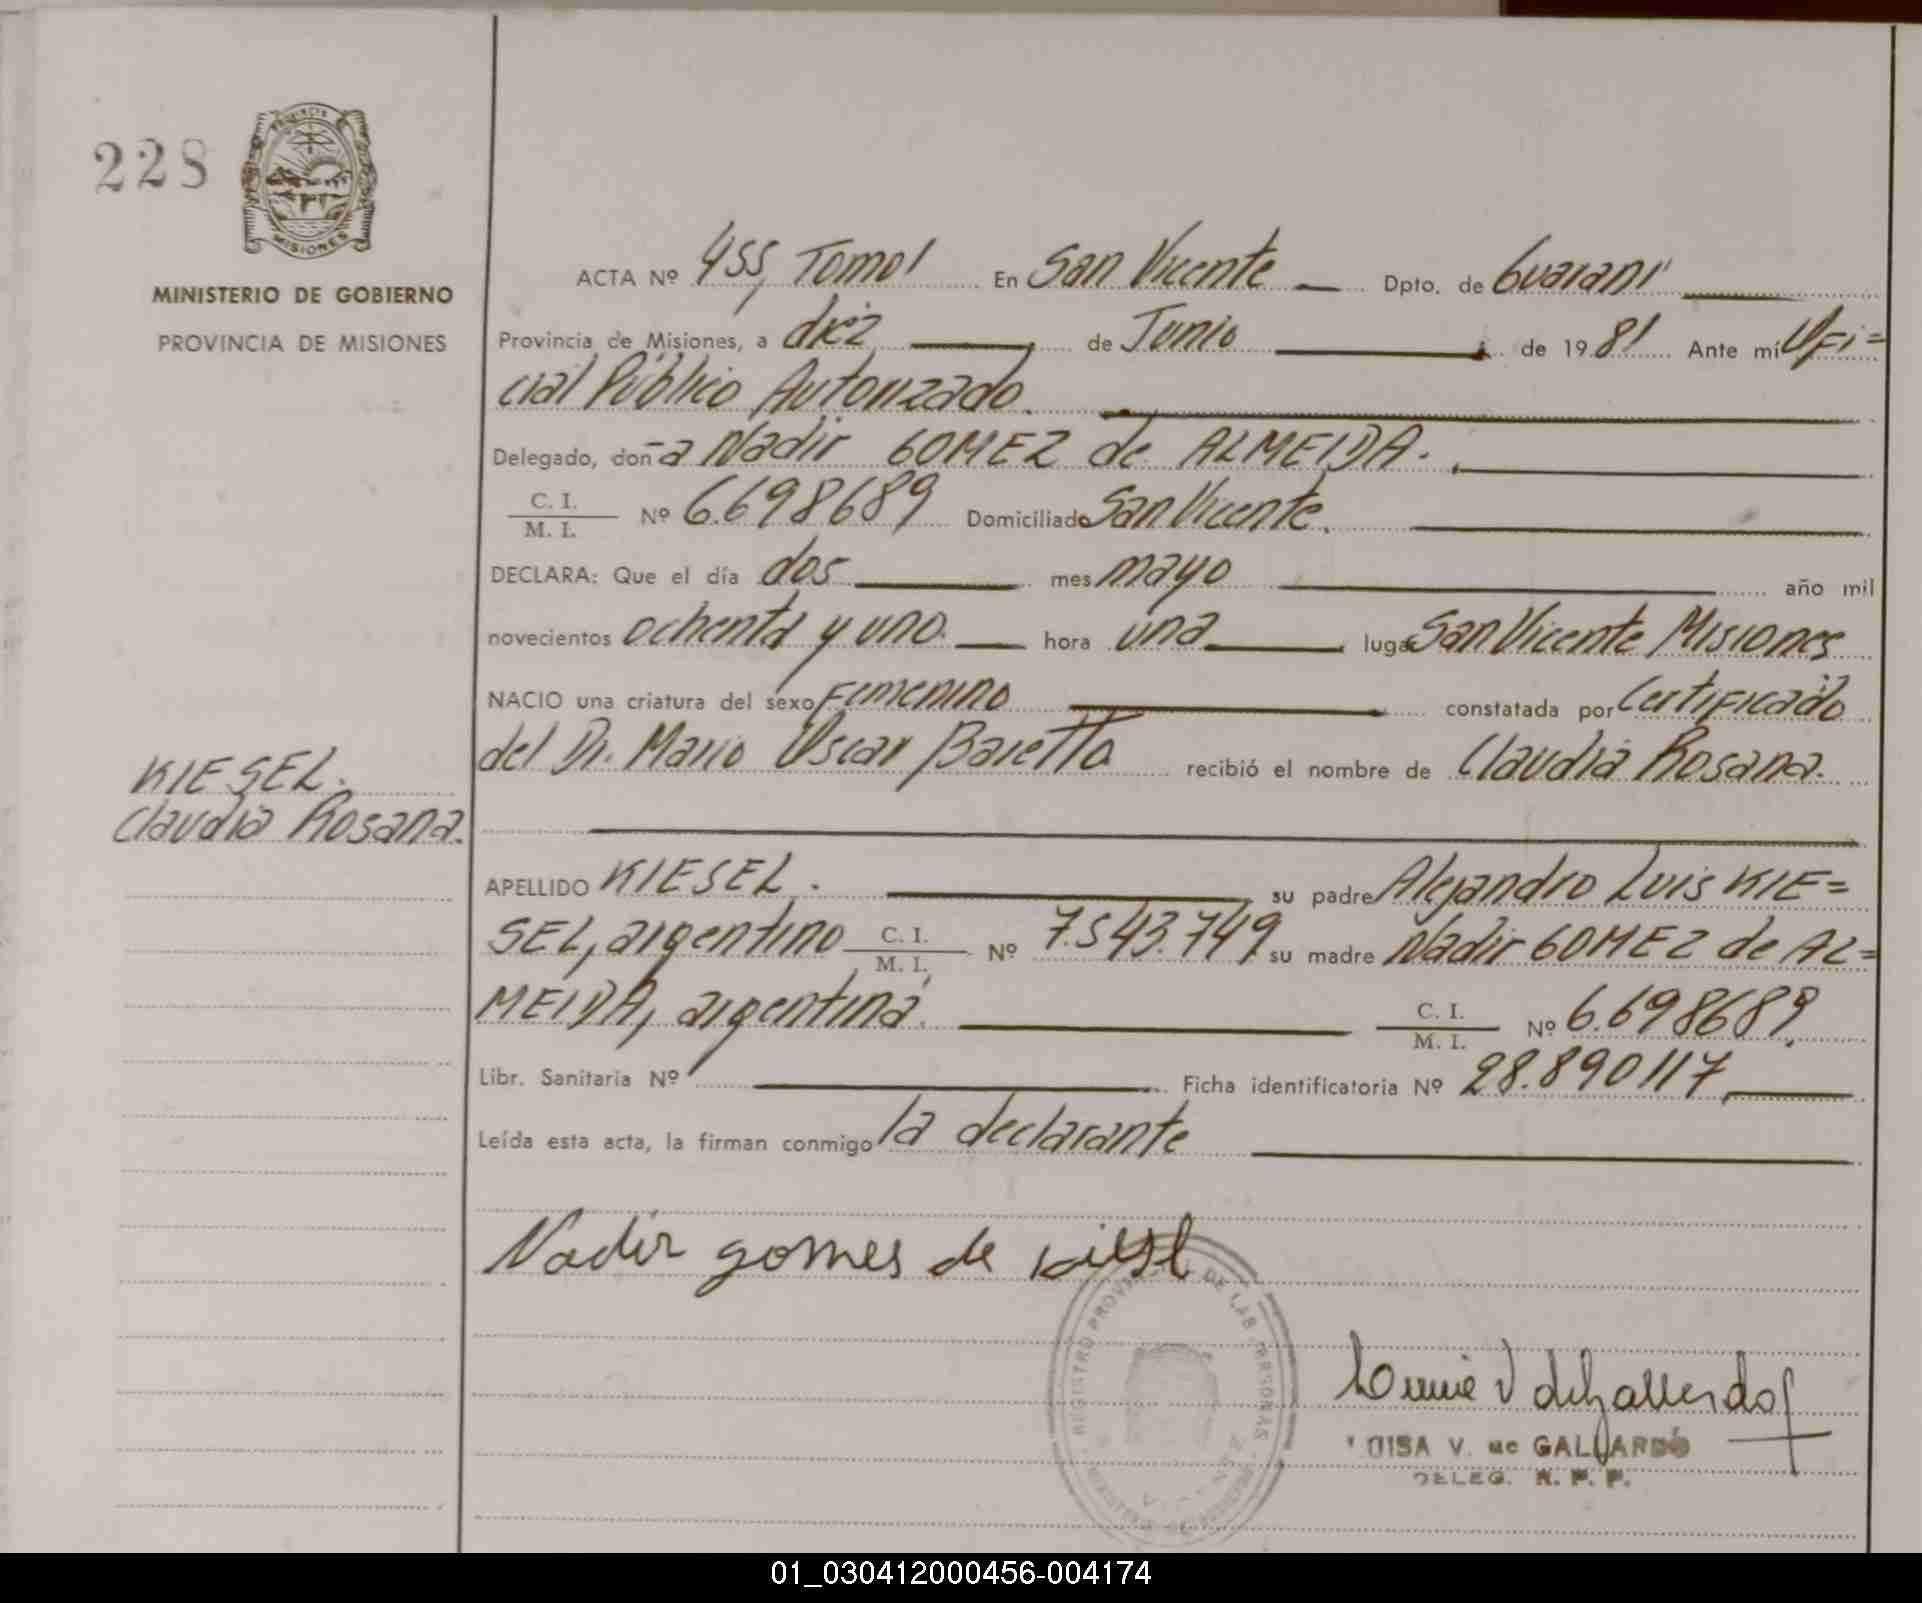 228
PROVINCIA
MISIONES
MINISTERIO DE GOBIERNO
PROVINCIA DE MISIONES
ACTA Nº 455, Tomo I En San Vicente Dpto. de Guaraní
Provincia de Misiones, a diez de Junio de 1981 Ante mí Ofi=
cial Público Autorizado.
Delegado, doña Nadir GOMEZ de ALMEIDA.
C. I.
M. I. Nº 6.698689 Domiciliado San Vicente.
DECLARA: Que el día dos mes mayo año mil
novecientos ochenta y uno. hora una lugar San Vicente Misiones
NACIO una criatura del sexo Femenino constatada por Certificado
del Dr. Mario Oscar Baretto recibió el nombre de Claudia Rosana.
KIESEL.
Claudia Rosana.
APELLIDO KIESEL. su padre Alejandro Luis KIE=
SEL, argentino C. I. M. I. Nº 7.543.749 su madre Nadir GOMEZ de AL=
MEIDA, argentina. C. I. M. I. Nº 6.698689
Libr. Sanitaria Nº Ficha identificatoria Nº 28.890117
Leída esta acta, la firman conmigo la declarante
Nadir gomes de kiesel
REGISTRO PROVINCIAL DE LAS PERSONAS
V. de Gallardo
V. de GALLARDO
DELEG. R. P. P.
01_030412000456-004174